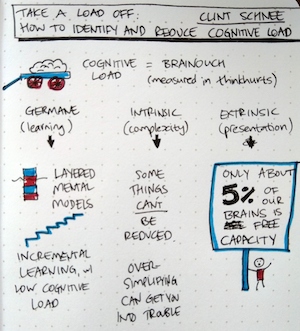 TAKE A LOAD OFF: CLINT SCHNEE
HOW TO IDENTIFY AND REDUCE COGNITIVE LOAD
COGNITIVE = BRAINOUCH
LOAD (measured in thinkhurts)
GERMANE
(learning)
LAYERED
MENTAL
MODELS
INCREMENTAL
LEARNING, w/
LOW COGNITIVE
LOAD
INTRINSIC
(complexity)
SOME
THINGS
CAN'T
BE
REDUCED.
OVER-
SIMPLIFYING
CAN GET YOU
INTO TROUBLE
EXTRINSIC
(presentation)
ONLY ABOUT
5% OF
OUR
BRAINS IS
FREE
CAPACITY